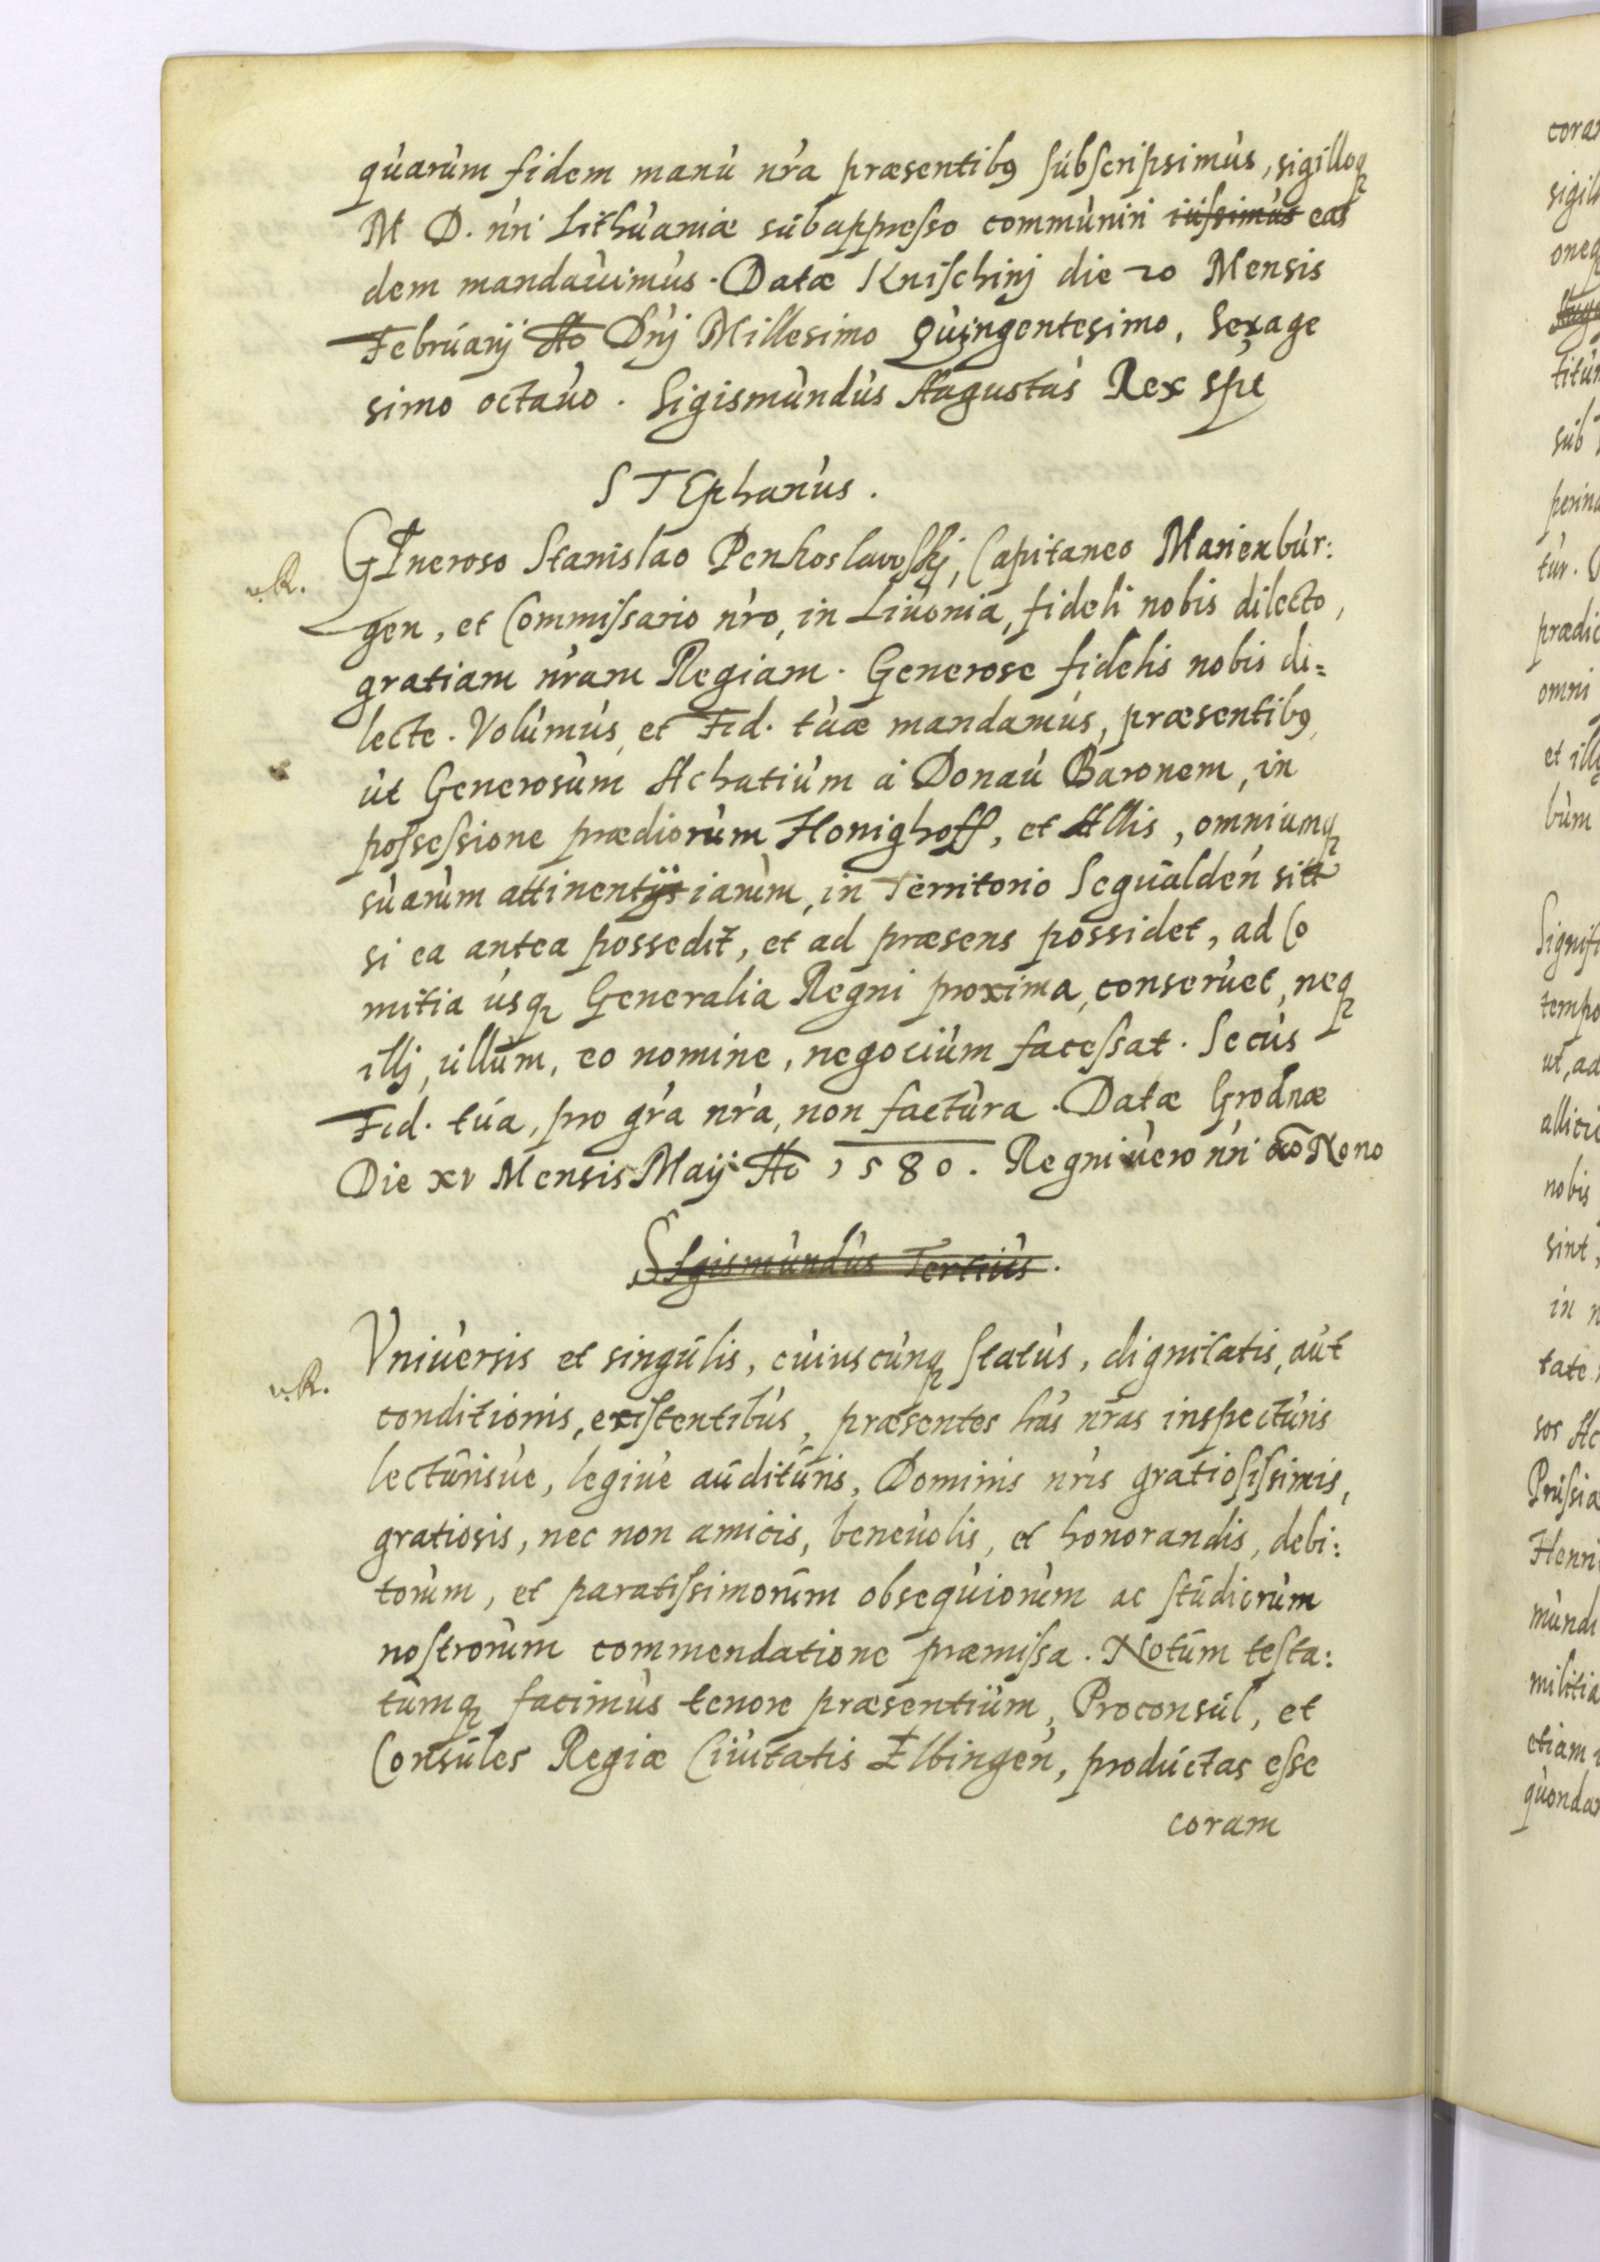 quarum fidem manu nra præsentibꝯ subscripsimus, sigilloq
M D. nri Lithuaniæ subappresso communiri iussimus eas
dem mandavimus. Datæ Knischinj die 20 Mensis
Februarij Ao Dnj Millesimo Quingentesimo, Sexage
simo octavo. Sigismundus Augustus Rex spt
STEphanus.
v.R.
GEneroso Stanislao Penkoslawskj, Capitaneo Marienbur:
gen, et Commissario nro, in Livonia, fideli nobis dilecto,
gratiam nram Regiam. Generose fidelis nobis di=
lecte. Volumus, et Fid. tuæ mandamus, præsentibꝯ
ut Generosum Achatium á Donau Baronem, in
possessione prædiorum Honighoff, et Allis, omniumq
suarum attinentijs iarum, in Territorio Segualden sitt
si ea antea possedit, et ad præsens possidet, ad Co
mitia usq Generalia Regni proxima, conservet, neq
illj, ullum, eo nomine, negocium facessat. Secus
Fid. tua, pro gra nra, non factura. Datæ Grodnæ
Die xv Mensis Maij Ao 1580. Regni vero nri Nono
SIgismundus Tertius.
v.R.
Universis et singulis, cuiuscunq status, dignitatis, aut
conditionis, existentibus, præsentes has nras inspecturis
lecturisve, legive audituris, Dominis nris gratiosissimis,
gratiosis, nec non amicis, benevolis, et honorandis, debi:
torum, et paratissimorum obsequiorum ac studiorum
nostrorum commendatione præmissa. Notum testa:
tumq facimus tenore præsentium, Proconsul, et
Consules Regiæ Civitatis Elbingen, productas esse
coram